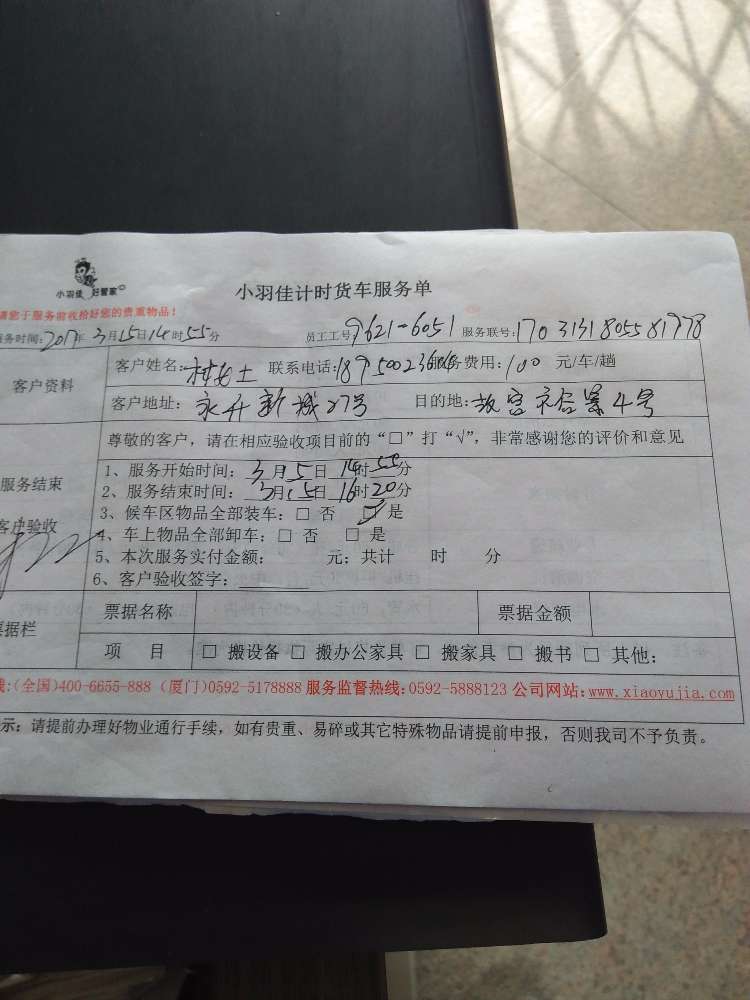 小羽佳 好管家
小羽佳计时货车服务单
请您于服务前收拾好您的贵重物品!
服务时间:2017年3月15日14时55分 员工工号:9621-6051 服务联号:1703131805581978
客户资料
客户姓名:林女士 联系电话:189500236 服务费用:100 元/车/趟
客户地址:永升新城27号 目的地:故宫裕景4号
尊敬的客户,请在相应验收项目前的“□”打“√”,非常感谢您的评价和意见
服务结束
客户验收
1、服务开始时间:3月15日14时55分
2、服务结束时间:3月15日16时20分
3、候车区物品全部装车:□ 否 ☑ 是
4、车上物品全部卸车:□ 否 □ 是
5、本次服务实付金额: 元:共计 时 分
6、客户验收签字:
票据栏
票据名称 票据金额
项 目 □ 搬设备 □ 搬办公家具 □ 搬家具 □ 搬书 □ 其他:
线:(全国)400-6655-888 (厦门)0592-5178888 服务监督热线:0592-5888123 公司网站:www.xiaoyujia.com
示:请提前办理好物业通行手续,如有贵重、易碎或其它特殊物品请提前申报,否则我司不予负责。